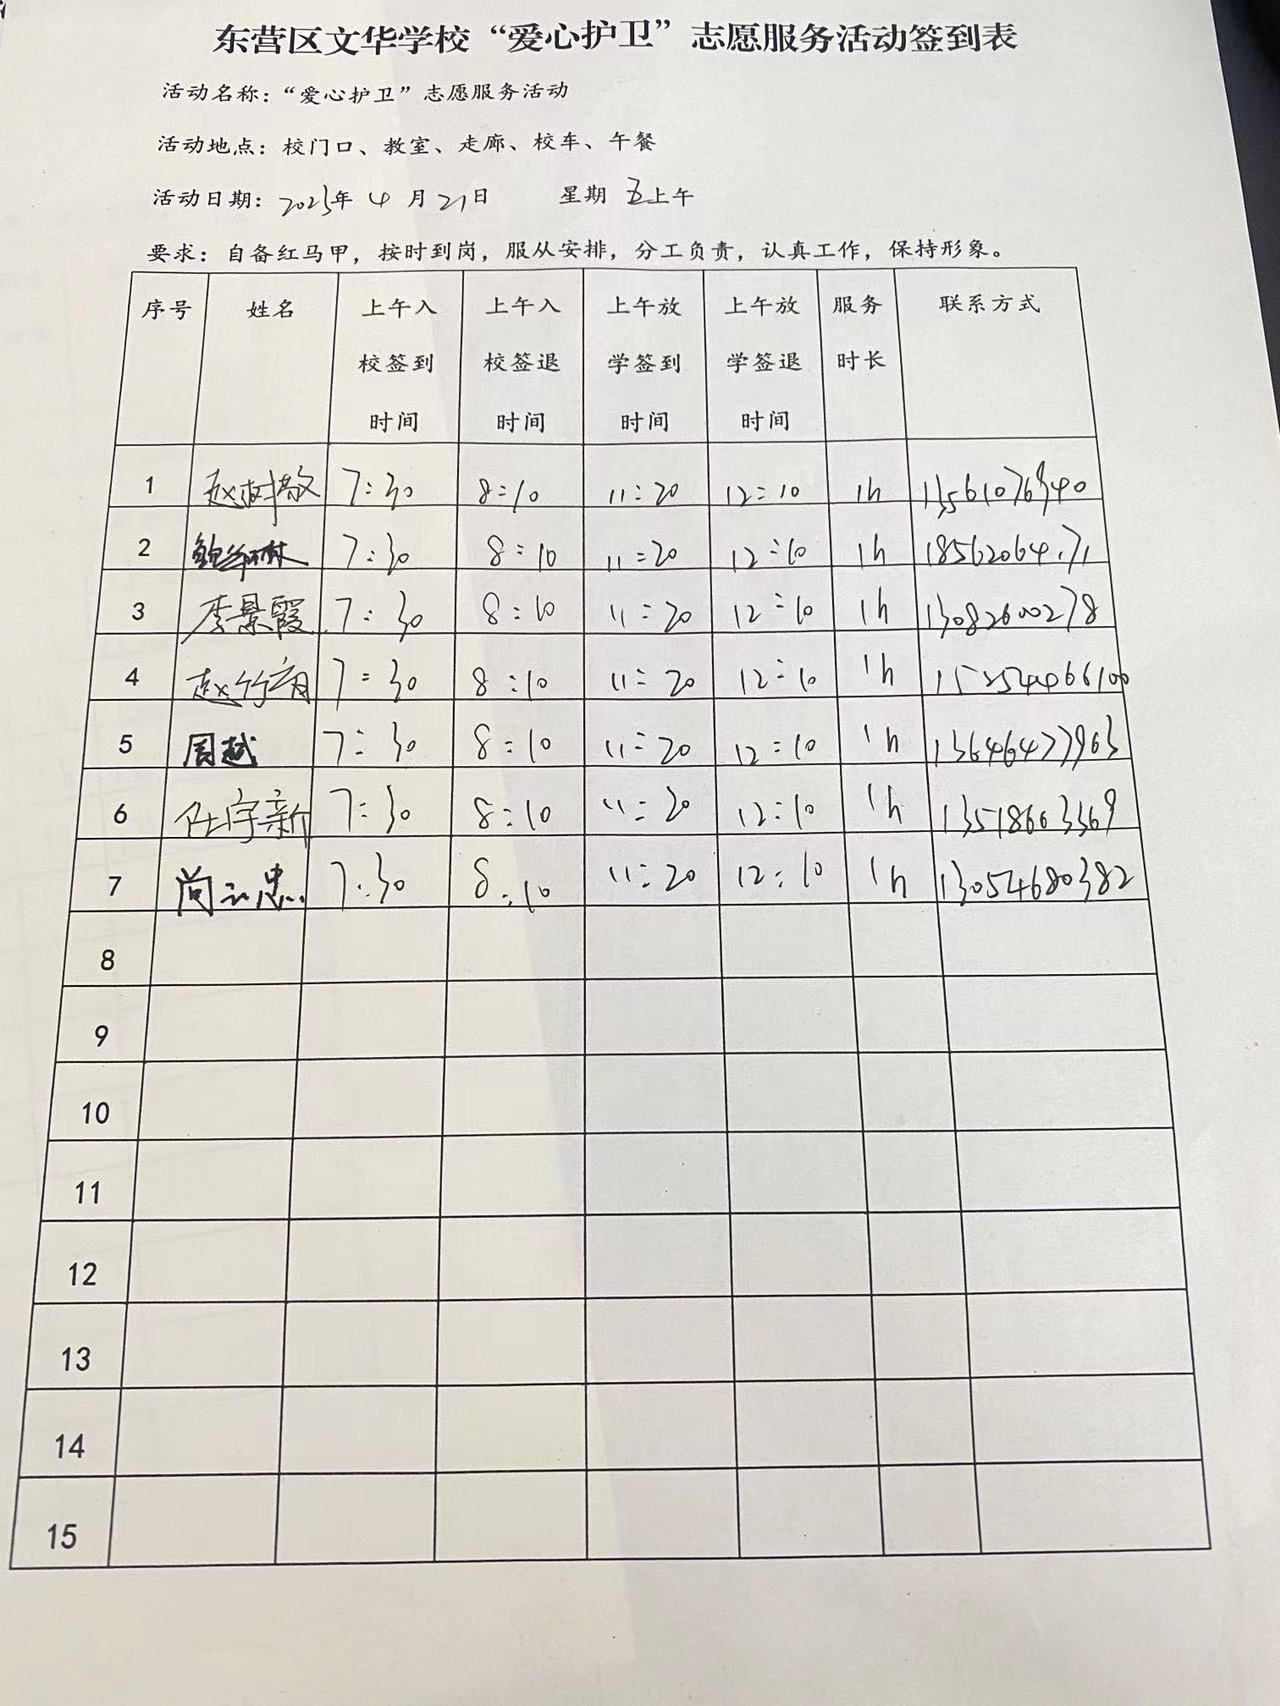 东营区文华学校“爱心护卫”志愿服务活动签到表
活动名称：“爱心护卫”志愿服务活动
活动地点：校门口、教室、走廊、校车、午餐
活动日期：2023年 4 月 21日 星期 五上午
要求：自备红马甲，按时到岗，服从安排，分工负责，认真工作，保持形象。
序号 姓名 上午入校签到时间 上午入校签退时间 上午放学签到时间 上午放学签退时间 服务时长 联系方式
1 7:30 8:10 11:20 12:10 1h
2 7:30 8:10 11:20 12:10 1h
3 李景霞 7:30 8:10 11:20 12:10 1h 13082600278
4 7:30 8:10 11:20 12:10 1h 15254466100
5 周越 7:30 8:10 11:20 12:10 1h 13646477963
6 任宇新 7:30 8:10 11:20 12:10 1h 13518663369
7 7:30 8:10 11:20 12:10 1h 13054680382
8
9
10
11
12
13
14
15